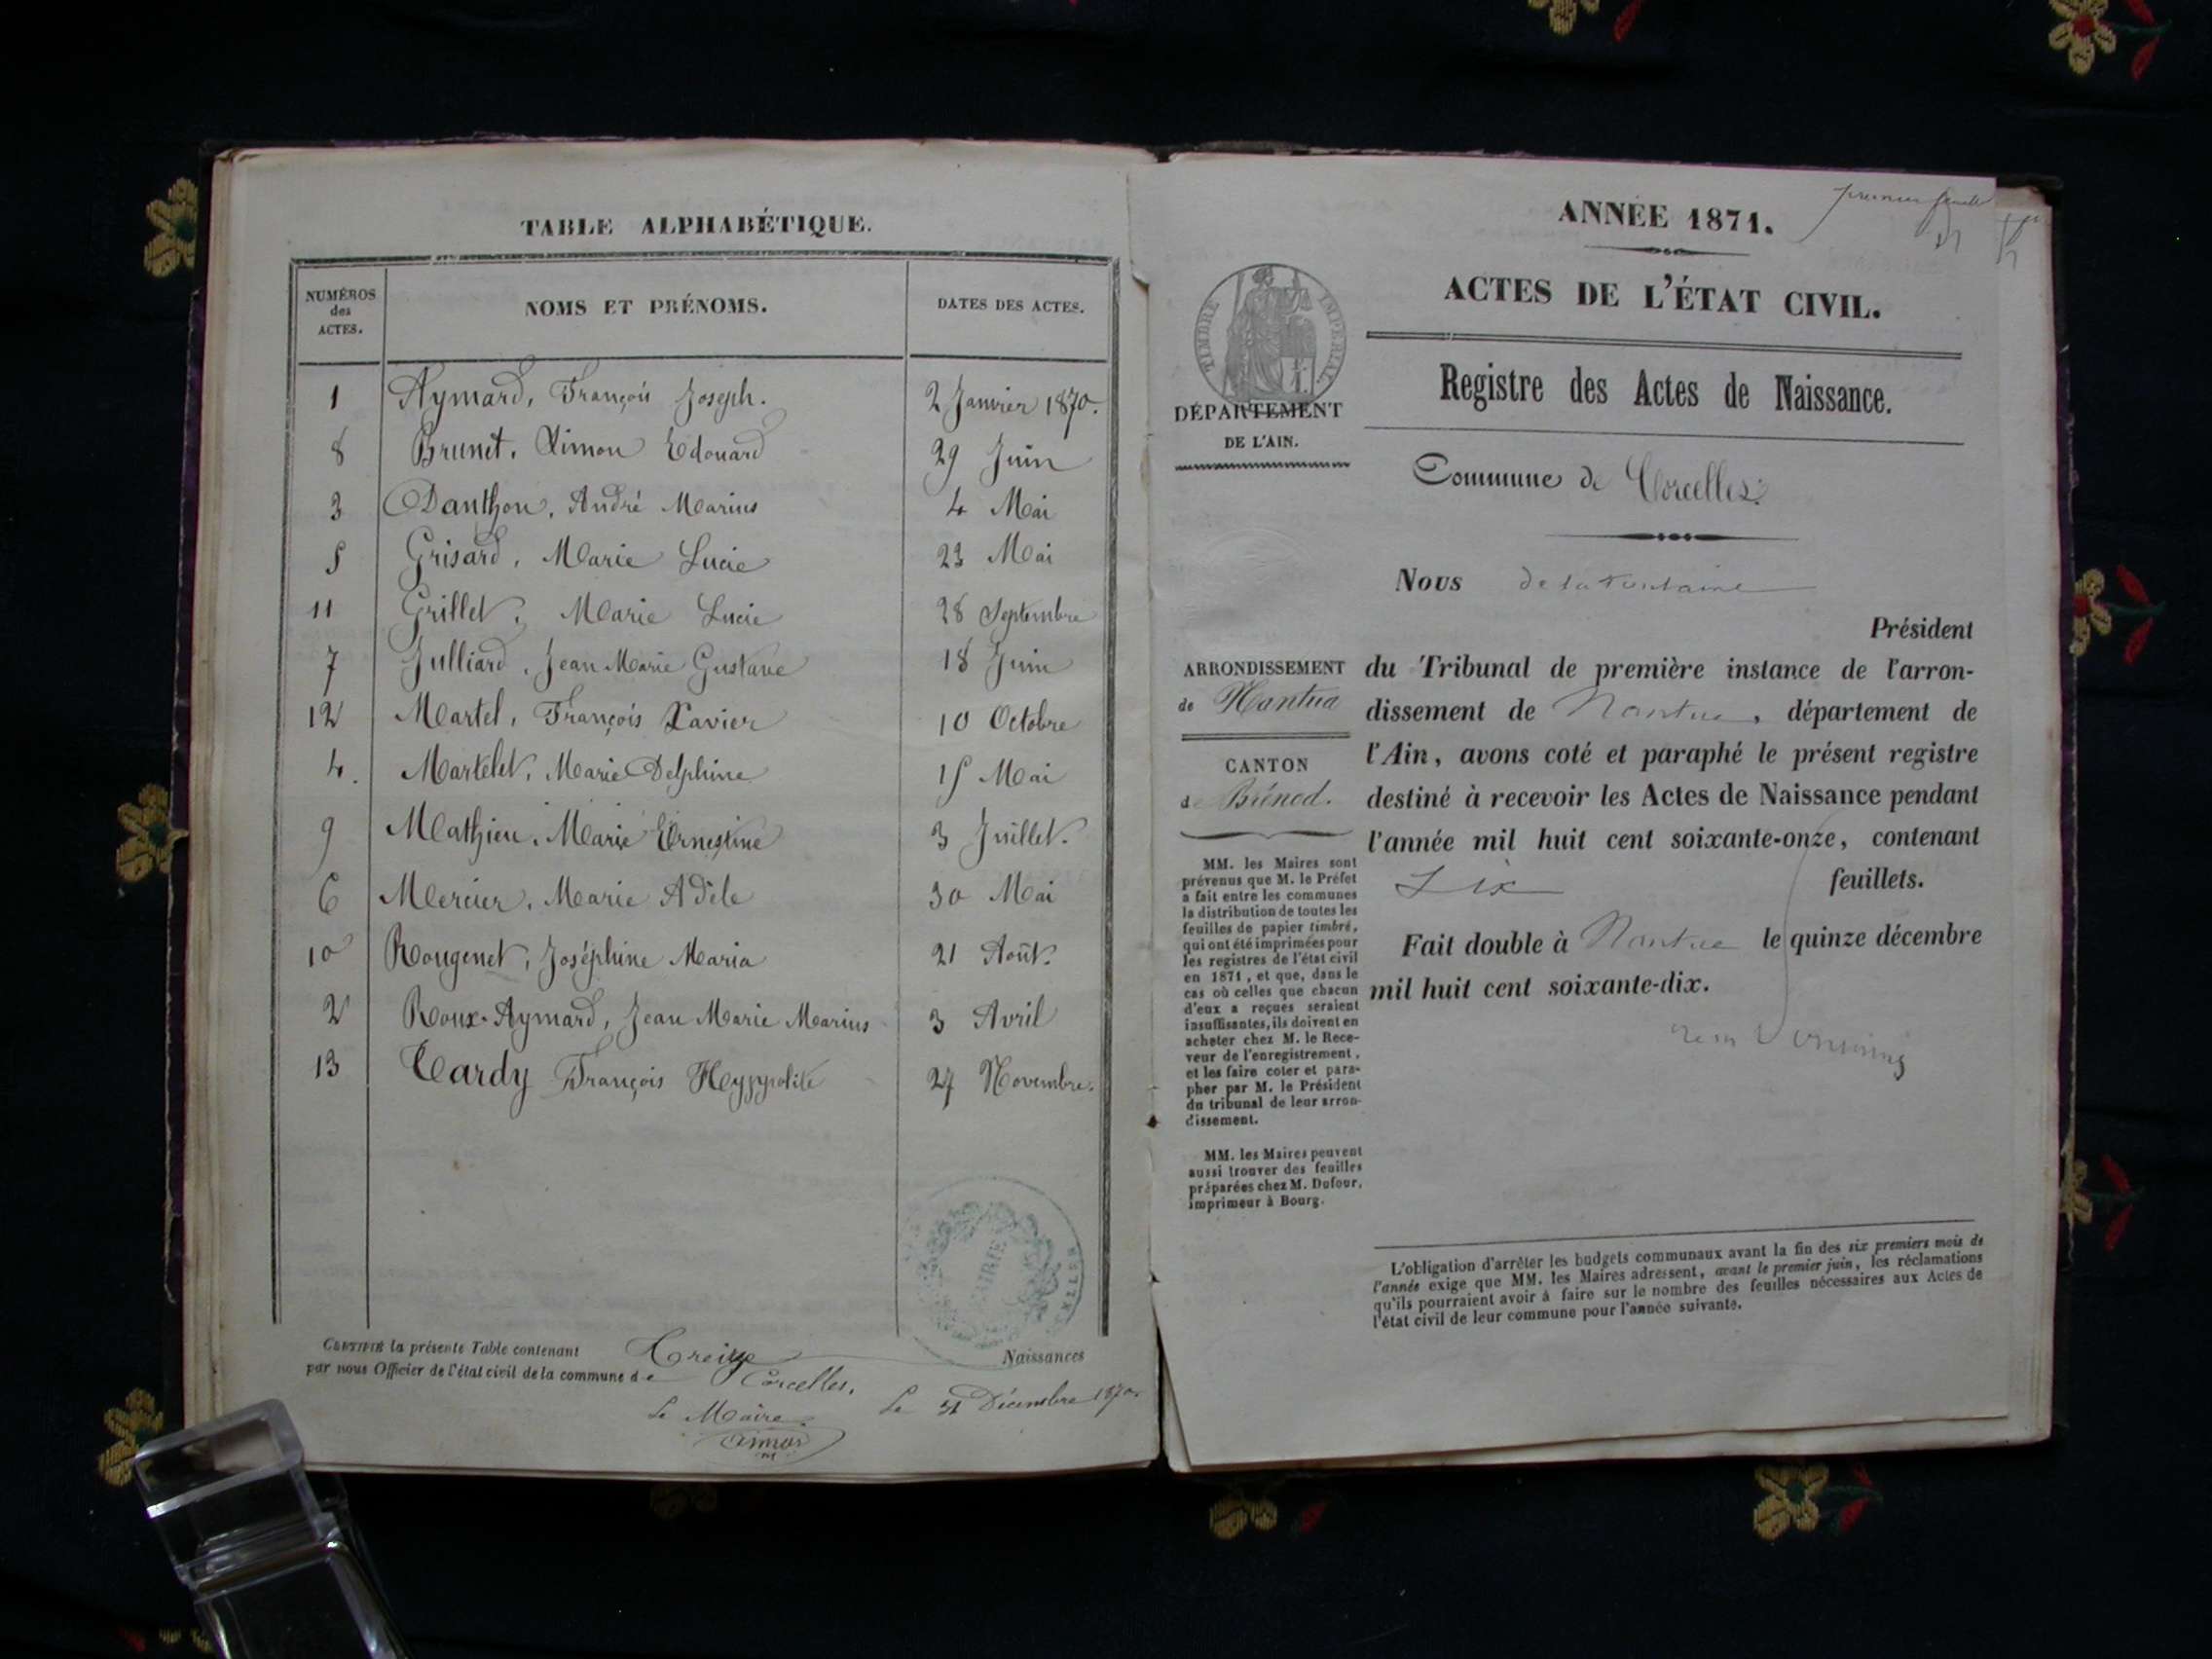 TABLE ALPHABÉTIQUE.
NUMÉROS
des
ACTES.
NOMS ET PRÉNOMS.
DATES DES ACTES.
1 Aymard, François Joseph. 2 Janvier 1870.
8 Brunet, Simon Edouard 29 Juin
3 Danthon, André Marius 4 Mai
5 Grisard, Marie Lucie 23 Mai
11 Grillet, Marie Lucie 28 Septembre
7 Julliard, Jean Marie Gustave 18 Juin
12 Martel, François Xavier 10 Octobre
4. Martelet, Marie Delphine 15 Mai
9 Mathieu, Marie Ernestine 3 Juillet.
6 Mercier, Marie Adèle 30 Mai
10 Rougenet, Joséphine Maria 21 Août.
2 Roux-Aymard, Jean Marie Marius 3 Avril
13 Tardy François Hyppolite 27 Novembre.
MAIRIE
CERTIFIÉ la présente Table contenant Treize Naissances
par nous Officier de l'état civil de la commune de Corcelles.
Le Maire. Le 31 Décembre 1870.
premier feuillet
ANNÉE 1871.
ACTES DE L'ÉTAT CIVIL.
TIMBRE IMPÉRIAL
Registre des Actes de Naissance.
DÉPARTEMENT
DE L'AIN.
Commune de Corcelles.
Nous de la Fontaine
Président
du Tribunal de première instance de l'arron-
dissement de Nantua, département de
l'Ain, avons coté et paraphé le présent registre
destiné à recevoir les Actes de Naissance pendant
l'année mil huit cent soixante-onze, contenant
Six feuillets.
Fait double à Nantua le quinze décembre
mil huit cent soixante-dix.
ARRONDISSEMENT
de Nantua
CANTON
de Brénod.
MM. les Maires sont
prévenus que M. le Préfet
a fait entre les communes
la distribution de toutes les
feuilles de papier timbré,
qui ont été imprimées pour
les registres de l'état civil
en 1871, et que, dans le
cas où celles que chacun
d'eux a reçues seraient
insuffisantes, ils doivent en
acheter chez M. le Rece-
veur de l'enregistrement,
et les faire coter et para-
pher par M. le Président
du tribunal de leur arron-
dissement.
MM. les Maires peuvent
aussi trouver des feuilles
préparées chez M. Dufour,
imprimeur à Bourg.
L'obligation d'arrêter les budgets communaux avant la fin des six premiers mois de
l'année exige que MM. les Maires adressent, avant le premier juin, les réclamations
qu'ils pourraient avoir à faire sur le nombre des feuilles nécessaires aux Actes de
l'état civil de leur commune pour l'année suivante.